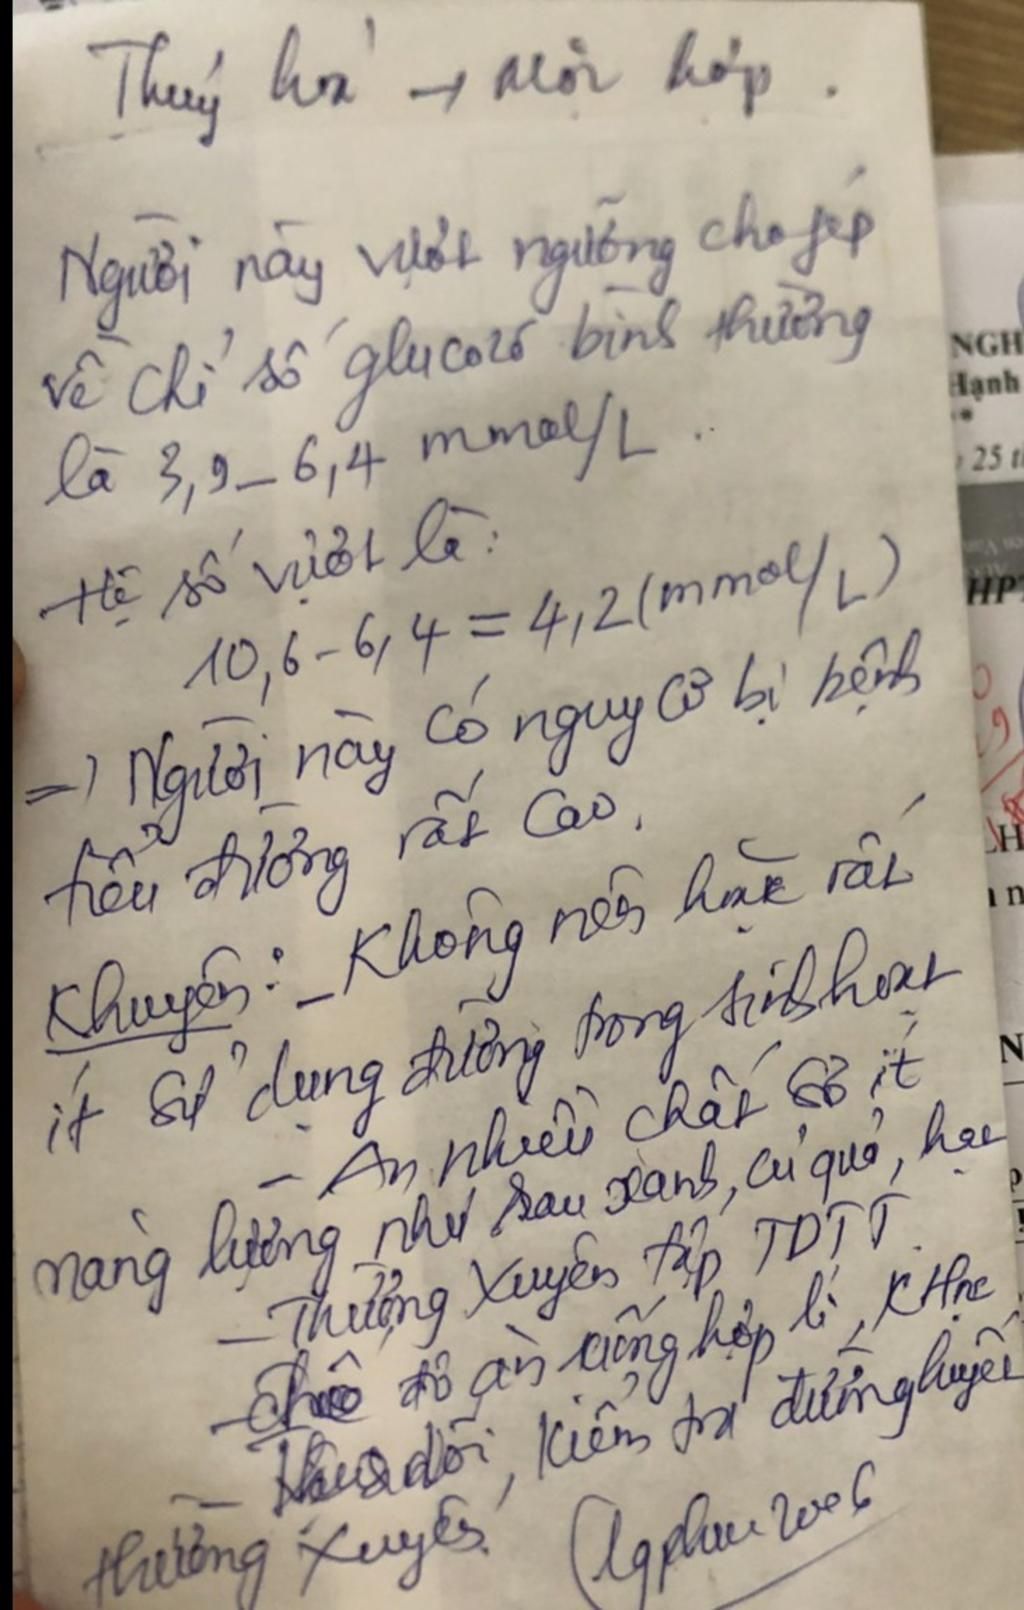 Thuỷ hoá → Nội hấp.
Người này vượt ngưỡng cho phép
về chỉ số glucozơ bình thường
là 3,9 – 6,4 mmol/L.
Hệ số vượt là:
10,6 - 6,4 = 4,2 (mmol/L)
=> Người này có nguy cơ bị bệnh
tiểu đường rất cao.
Khuyên: - Không nên hoặc rất
ít sử dụng đường trong sinh hoạt
- Ăn nhiều chất sơ ít
năng lượng như rau xanh, củ quả, hạt
- Thường xuyên tập TDTT.
- Chế độ ăn uống hợp lí, KHọc
- Theo dõi, kiểm tra đường huyết
thường xuyên.
NGH
Hạnh
25 t
HPT